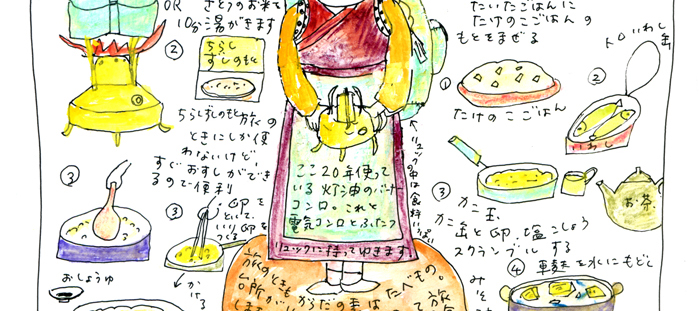 OR
さとうのお米で
10分湯がきます
②
ちらし
すしのもと
ちらしずしのもと旅の
ときにしか使
わないけど、
すぐおすしができ
るので便利
③
③
卵を
といて、
いり卵を
つくる
おしょうゆ
かける
ここ20年使って
いる灯油のバーナー
コンロ。これと
電気コンロとふたつ
リュックに持ってゆきます
旅のときも からだの素はたべもの。
たいたごはんに
たけのこごはんの
もとをまぜる
①
たけのこごはん
②
トロいわし
缶
いわし
リュックの中は食料いっぱい
③
カニ玉、
カニ缶と卵、塩こしょう
スクランブルする
お茶
④ 車麸を水にもどし